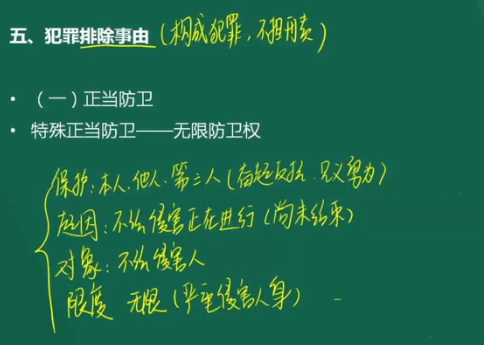 五、犯罪排除事由（构成犯罪，不担刑责）
• （一）正当防卫
• 特殊正当防卫——无限防卫权
保护：本人、他人、第三人（奋起反抗、见义勇为）
起因：不法侵害正在进行（尚未结束）
对象：不法侵害人
限度 无限（严重侵害人身）